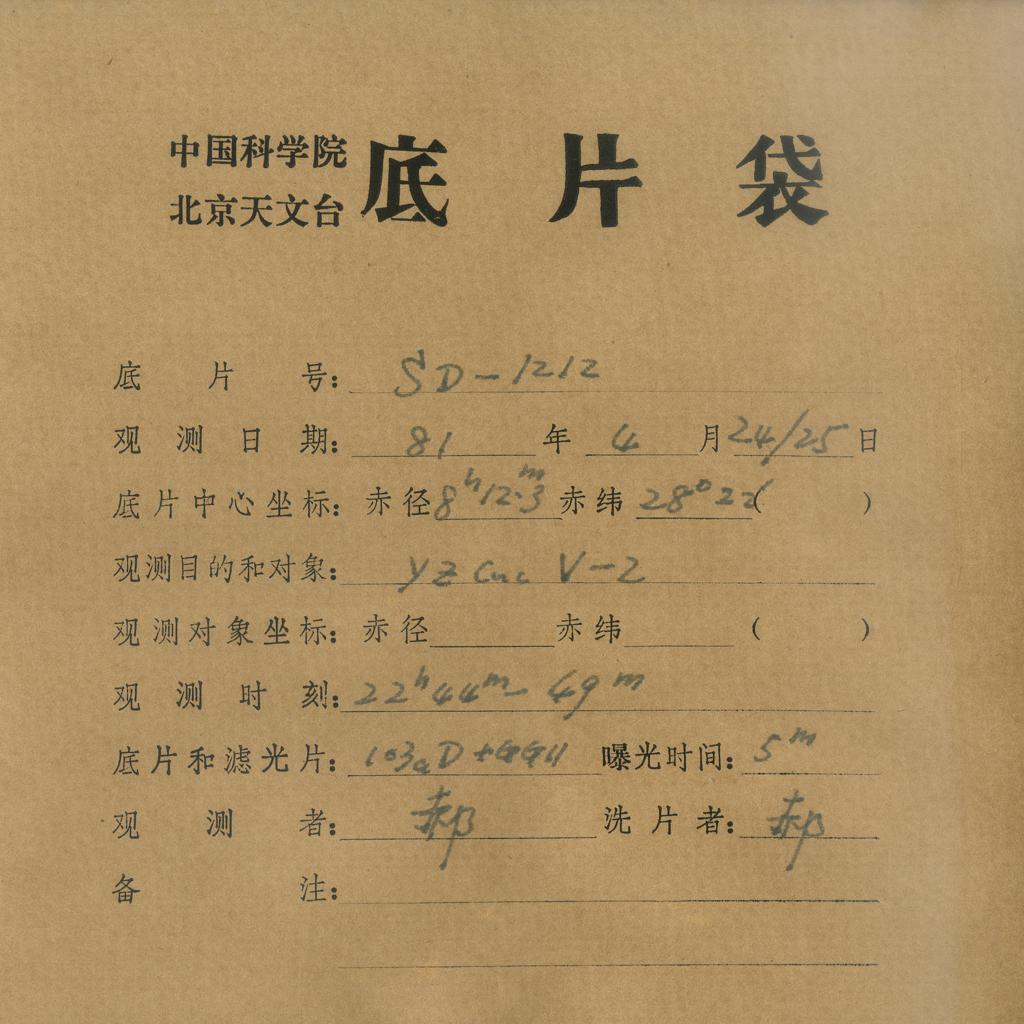 中国科学院
北京天文台
底片袋
底片号: SD-1212
观测日期: 81年4月24/25日
底片中心坐标: 赤径8h12.m3 赤纬28°22( )
观测目的和对象: YZ Cnc V-2
观测对象坐标: 赤径 赤纬 ( )
观测时刻: 22h44m-49m
底片和滤光片: 103aD+GG11 曝光时间: 5m
观测者: 郝 洗片者: 郝
备注: